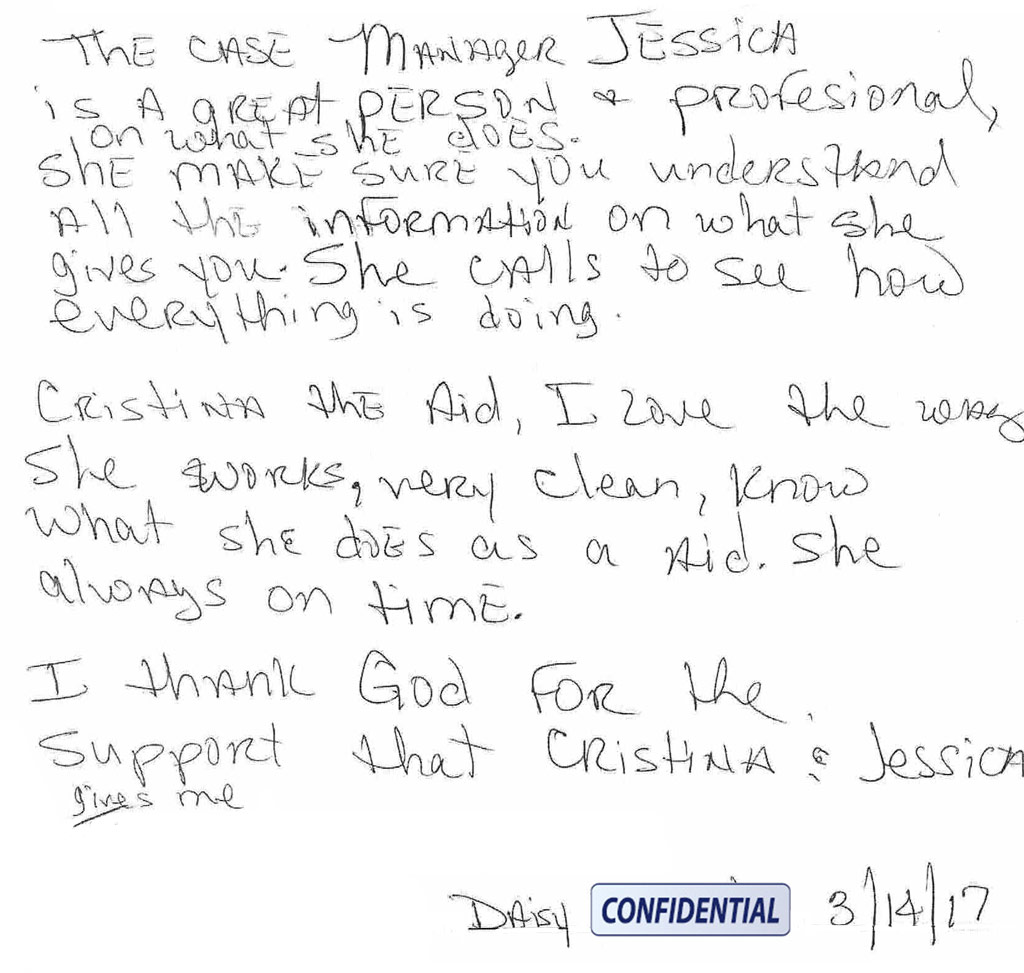 The CASE MANAger JESSiCA
is A gREAt PERSON & profesional,
on what she dOES.
ShE MAKE SURE you understand
All the inFORMAtiON on what she
gives you. She CAlls to see how
everything is doing.
CRistiNA thE Aid, I love the way
She works, very clean, Know
what she dOES as a Aid. She
always on timE.
I thank God FOR the
Support that CRistiNA & JessicA
gives me
DAisy CONFIDENTIAL 3/14/17